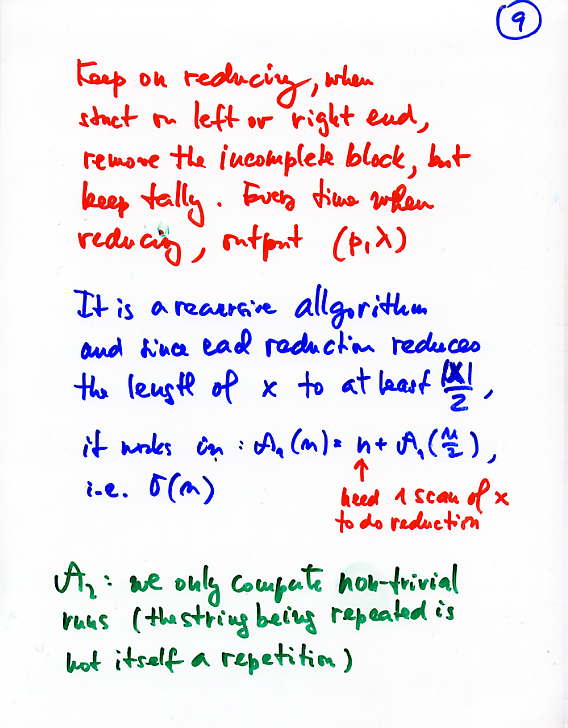 9
Keep on reducing, when
stuct on left or right end,
remove the incomplete block, but
keep tally. Every time when
reducing, output (p, λ)
It is a recursive allgorithm
and since each reduction reduces
the length of x to at least |X|/2,
it works in: A₁(n) = n + A₁(n/2),
i.e. O(n)
need 1 scan of x
to do reduction
A₂: we only compute non-trivial
runs (the string being repeated is
not itself a repetition)